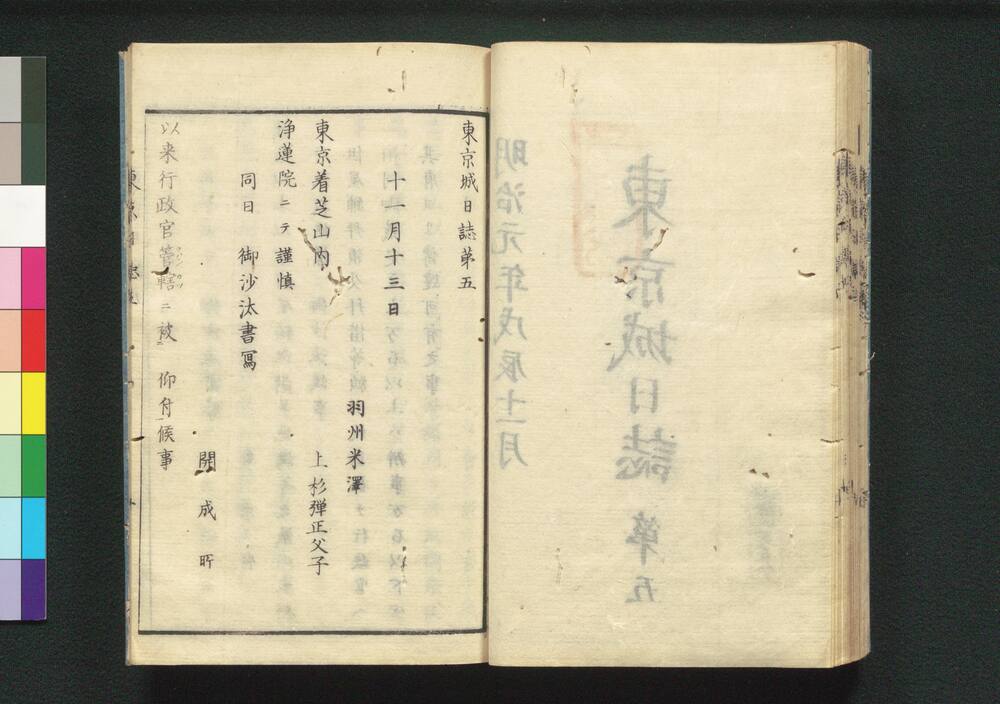 東京城日誌第五
十一月十三日
羽州米澤
上杉弾正父子
東京着芝山内
浄蓮院ニテ謹慎
同日 御沙汰書寫
開成所
以来行政官管轄ニ被 仰付候事
明治元年戊辰十一月
東京城日誌 第五